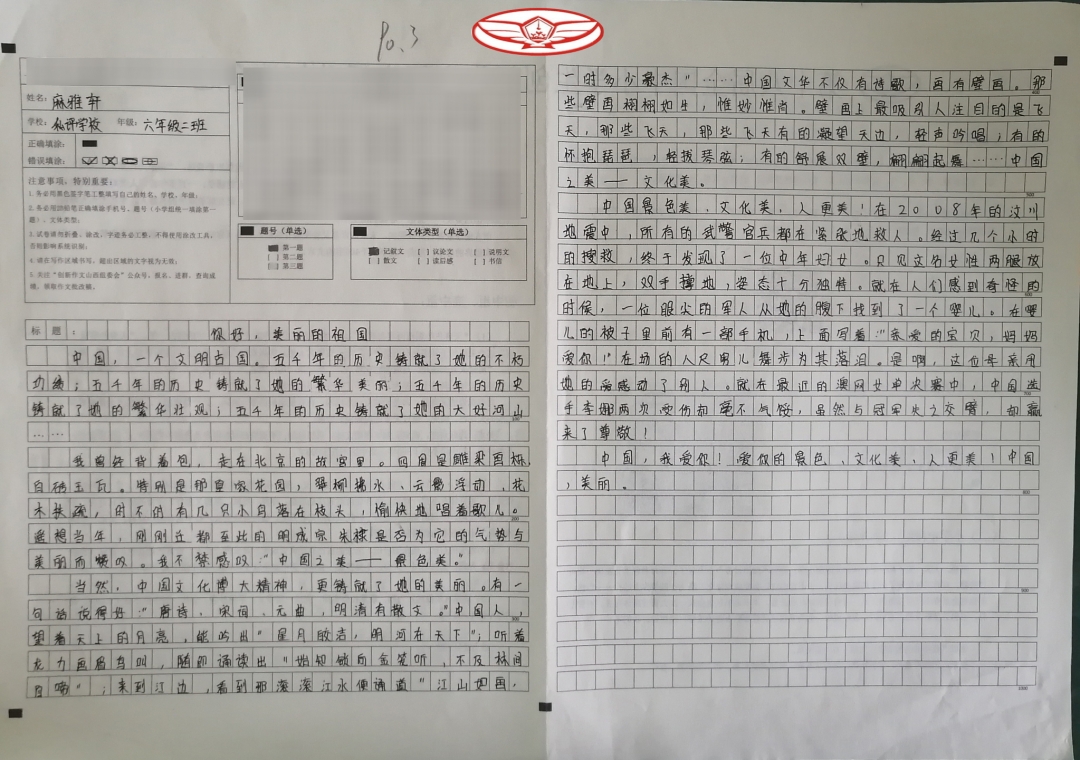 90.3
姓名：麻雅轩
学校：私评学校 年级：六年级二班
正确填涂：
错误填涂：
注意事项，特别重要：
1.务必用黑色签字笔工整填写自己的姓名、学校、年级；
2.务必用2B铅笔正确填涂手机号、题号（小学组统一填涂第一
题）、文体类型。
3.试卷请勿折叠、涂改，字迹务必工整，不得使用涂改工具，
否则影响系统识别；
4.请在写作区域书写，超出区域的文字视为无效；
5.关注“创新作文山西组委会”公众号，报名、进群、查询成
绩、领取作文批改稿。
题号（单选）
第一题
[ ] 第二题
[ ] 第三题
文体类型（单选）
记叙文 [ ] 议论文 [ ] 说明文
[ ] 散文 [ ] 读后感 [ ] 书信
标题： 你好，美丽的祖国
中国，一个文明古国。五千年的历史铸就了她的不朽
功绩；五千年的历史铸就了她的繁华美丽；五千年的历史
铸就了她的繁华壮观；五千年的历史铸就了她的大好河山
……
我曾经背着包，走在北京的故宫里。四周是雕梁画栋，
白砖玉瓦。特别是那皇家花园，翠柳拂水、云霞浮动、花
木扶疏，时不时有几只小鸟落在枝头，愉快地唱着歌儿。
遥想当年，刚刚迁都至此的明成宗朱棣是否为它的气势与
美丽而赞叹。我不禁感叹：“中国之美——景色美。”
当然，中国文化博大精神，更铸就了她的美丽。有一
句话说得好：“唐诗、宋词、元曲，明清有散文。”中国人，
望着天上的月亮，能吟出“星月皎洁，明河在天下”；听着
龙力画眉鸟叫，随即诵读出“始知锁向金笼听，不及林间
自啼”；来到江边，看到那滚滚江水便诵道“江山如画，
一时多少豪杰”……中国文华不仅有诗歌，画有壁画。那
些壁画栩栩如生，惟妙惟肖。壁画上最吸引人注目的是飞
天，那些飞天，那些飞天有的凝望天边，轻声吟唱；有的
怀抱琵琶，轻拨琴弦；有的舒展双壁，翩翩起舞……中国
之美——文化美。
中国景色美、文化美，人更美！在2008年的汶川
地震中，所有的武警官兵都在紧张地救人。经过几个小时
的搜救，终于发现了一位中年妇女。只见这名女性两腿放
在地上，双手撑地，姿态十分独特。就在人们感到奇怪的
时候，一位眼尖的军人从她的腹下找到了一个婴儿。在婴
儿的被子里前有一部手机，上面写着：“亲爱的宝贝，妈妈
爱你！”在场的人尺男儿舞步为其落泪。是啊，这位母亲用
她的爱感动了别人。就在最近的澳网女单决赛中，中国选
手李娜两次受伤却毫不气馁，虽然与冠军失之交臂，却赢
来了尊敬！
中国，我爱你！爱你的景色、文化美、人更美！中国
，美丽。